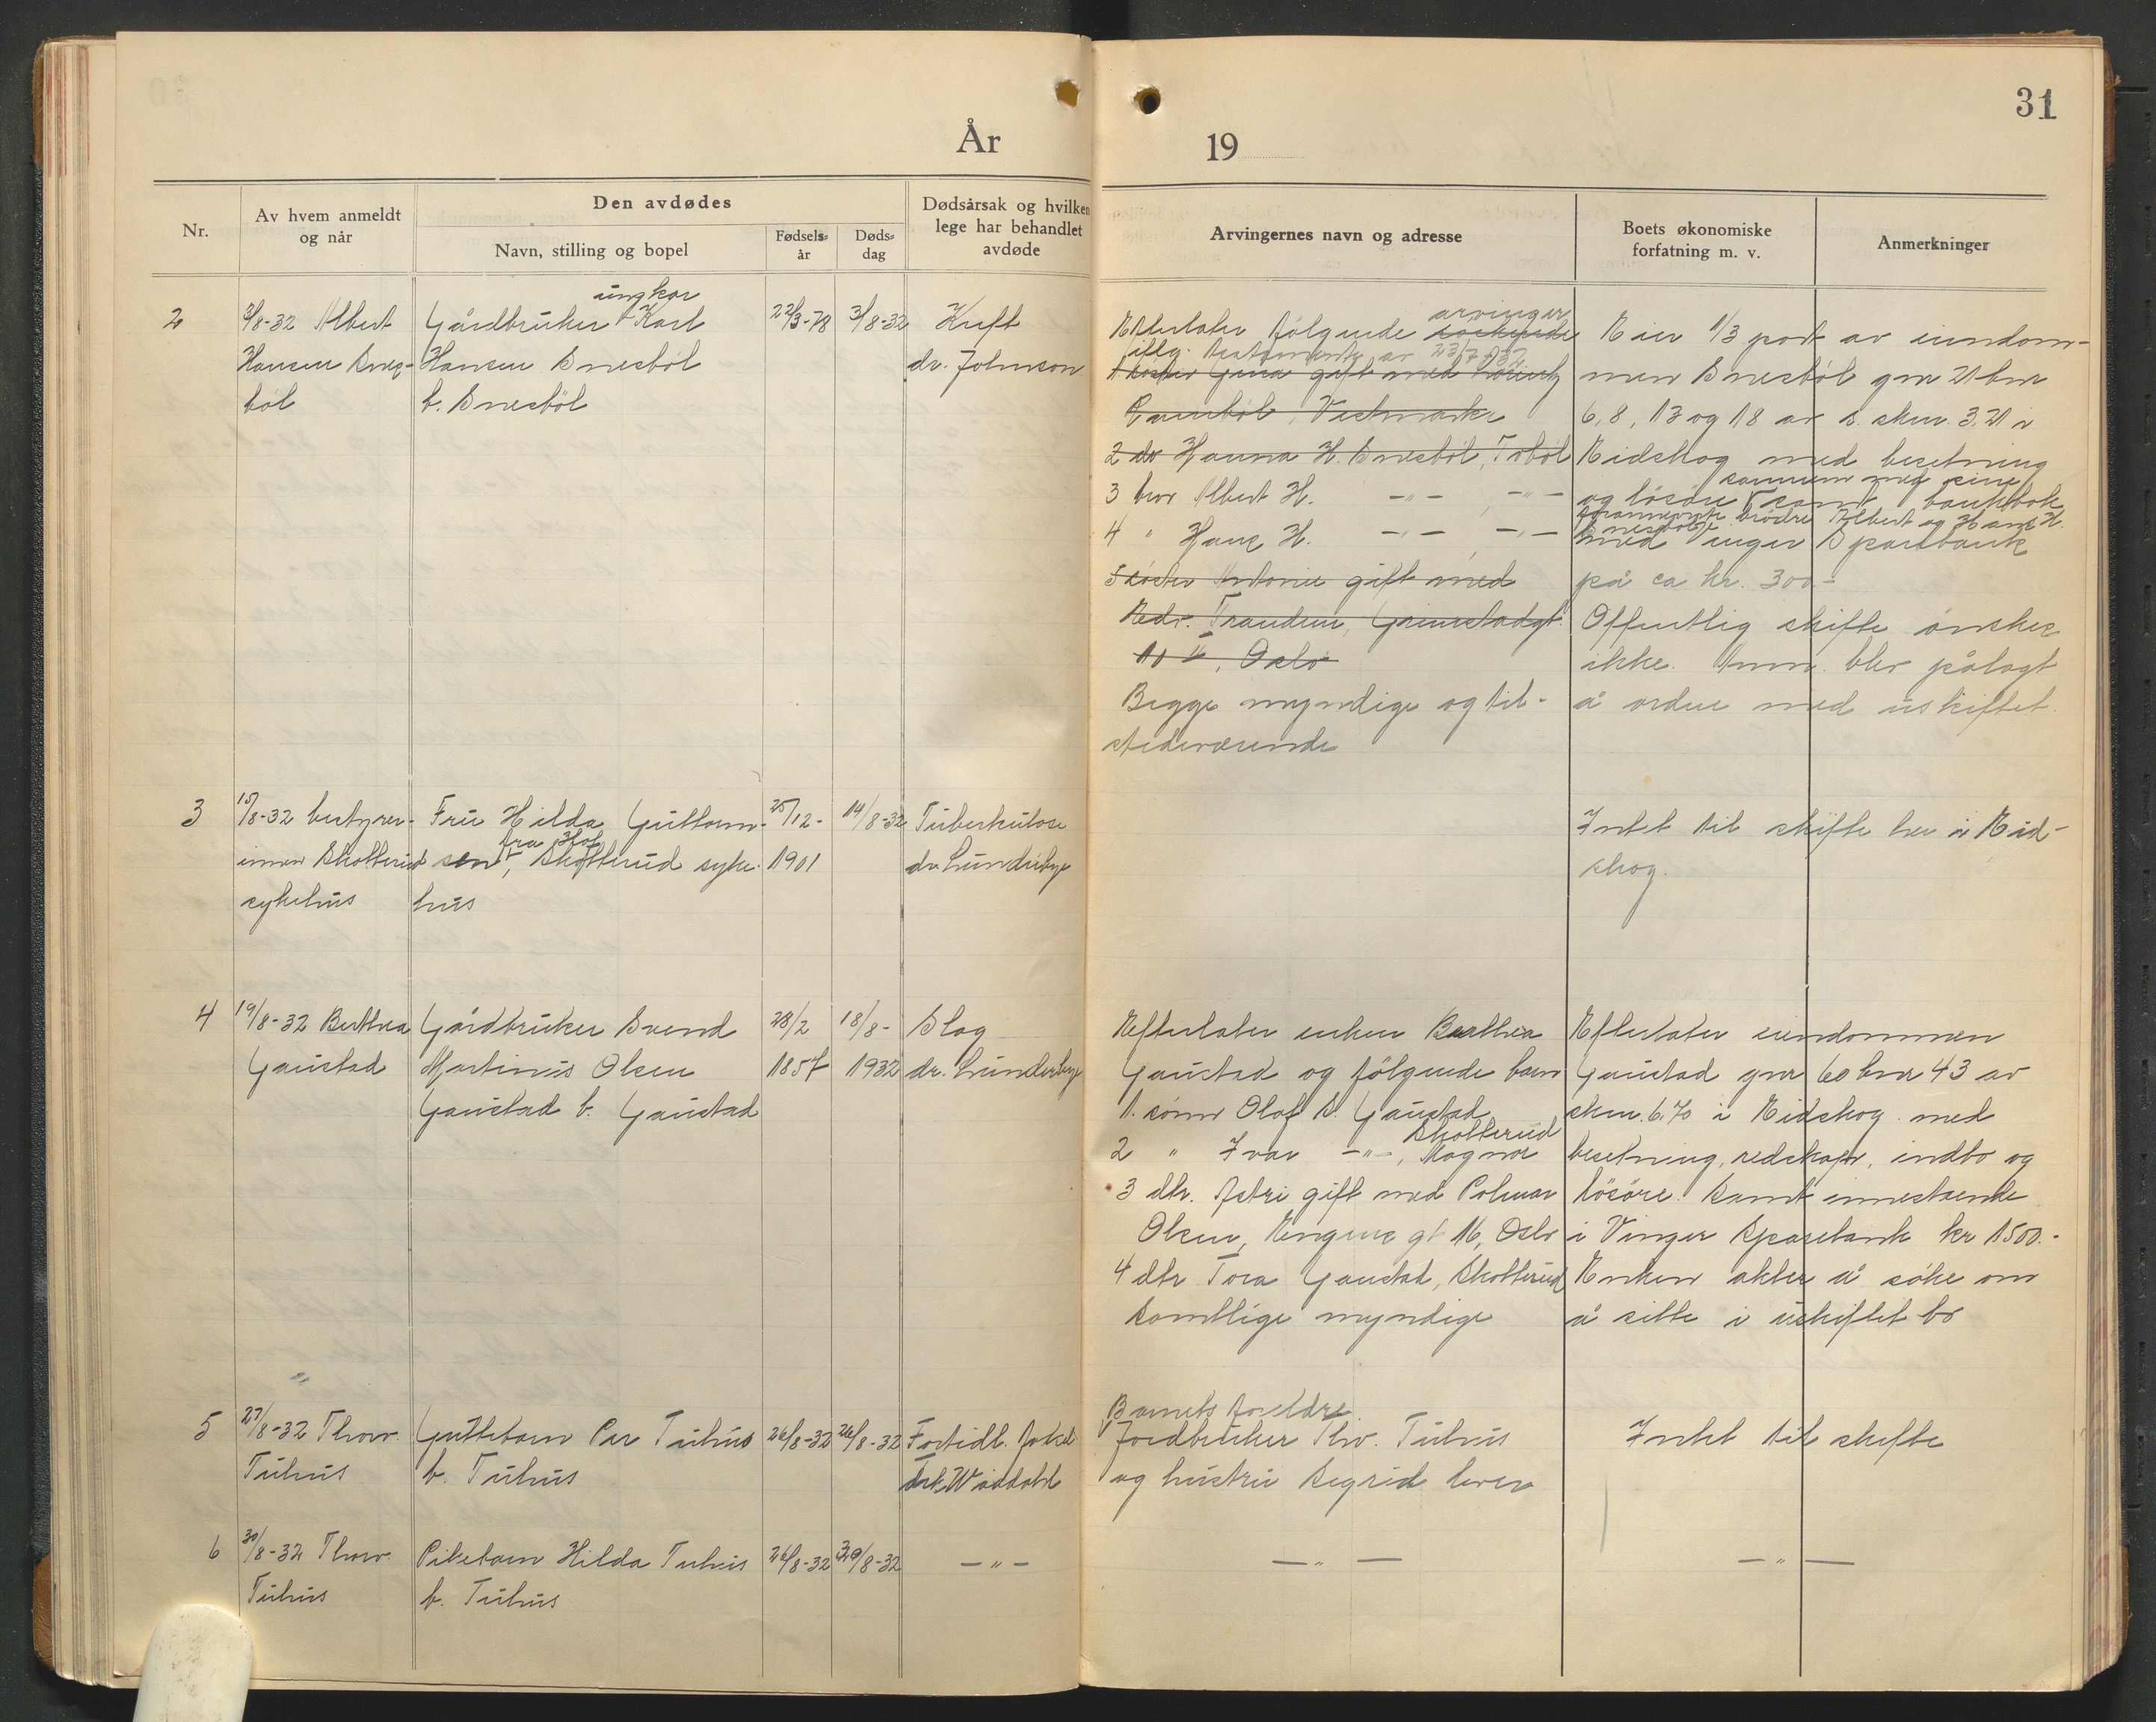 År
19
31
Nr.
Av hvem anmeldt og når
Den avdødes
Navn, stilling og bopel
Fødsels-år
Døds-dag
Dødsårsak og hvilken lege har behandlet avdøde
Arvingernes navn og adresse
Boets økonomiske forfatning m. v.
Anmerkninger
2
3/8-32 Albert
Hansen Snes-
böl
ungkar
Gårdbruker Karl
Hansen Snesböl
b. Snesböl
22/3-78
3/8-32
Kreft
dr. Johnson
Efterlater fölgende söskende arvinger
iflg. testamente av 23/7-1932
1 söster Gina gift med
Vestmarka
2 do Hanna H. Snesböl, Toböl
3 bror Albert H. -"- , -"-
4 " Hans H. -"- , -"-
5 söster Antonie gift med
Fredr. Tranden, Grimstadgt.
10 II, Oslo
Begge myndige og til-
stedeværende
Eier 1/3 part av eiendom-
men Snesböl gnr 21 bnr
6, 8, 13 og 18 av s. skm. 3,21 i
Eidskog med besetning
sammen med sine
og lösöre samt bankbok
forannevnte brödre Albert og Hans H.
Snesböl
med Vinger Sparebank
på ca kr. 300-
Offentlig skifte önskes
ikke. Anm. blev pålagt
å ordne med uskiftet.
3
15/8-32 bestyrer-
innen Skotterud
sykehus
Fru Hilda Guttorm-
fra Hof
sen, Skotterud syke-
hus
25/12-
1901
14/8-32
Tuberkulose
dr. Lunderbye
Intet til skifte her i Eid-
skog.
4
19/8-32 Berthea
Gaustad
Gårdbruker Svend
Martinius Olsen
Gaustad b. Gaustad
28/2
1857
18/8-
1932
Slag
dr. Lunderbye
Efterlater enken Berthea
Gaustad og fölgende barn
1. sönn Olaf S. Gaustad
Skotterud
2 " Ivar -"-, Magnor
3 dtr. Astri gift med Colmar
Olsen, Engens gt 16, Oslo
4 dtr Tora Gaustad, Skotterud
Samtlige myndige
Efterlater eiendommen
Gaustad gnr 60 bnr 43 av
skm. 6.70 i Eidskog med
besetning, redskaper, indbo og
lösöre. Samt innestaende
i Vinger Sparebank kr 1500.-
Enken akter å söke om
å sitte i uskiftet bo
5
27/8-32 Thorv.
Tuhus
Guttebarn Per Tuhus
b. Tuhus
26/8-32
26/8-32
Fortidl. födsel
Barnets foreldre
Jordbruker Thv. Tuhus
og hustru Sigrid lever
Intet til skifte
6
30/8-32 Thorv.
Tuhus
Pikebarn Hilda Tuhus
b. Tuhus
26/8-32
29/8-32
-"-
-"-
-"-